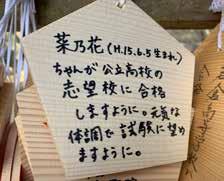 菜乃花(H.15.6.5 生まれ)
ちゃんが公立高校の
志望校に合格
しますように。元気な
体調で試験に望め
ますように。